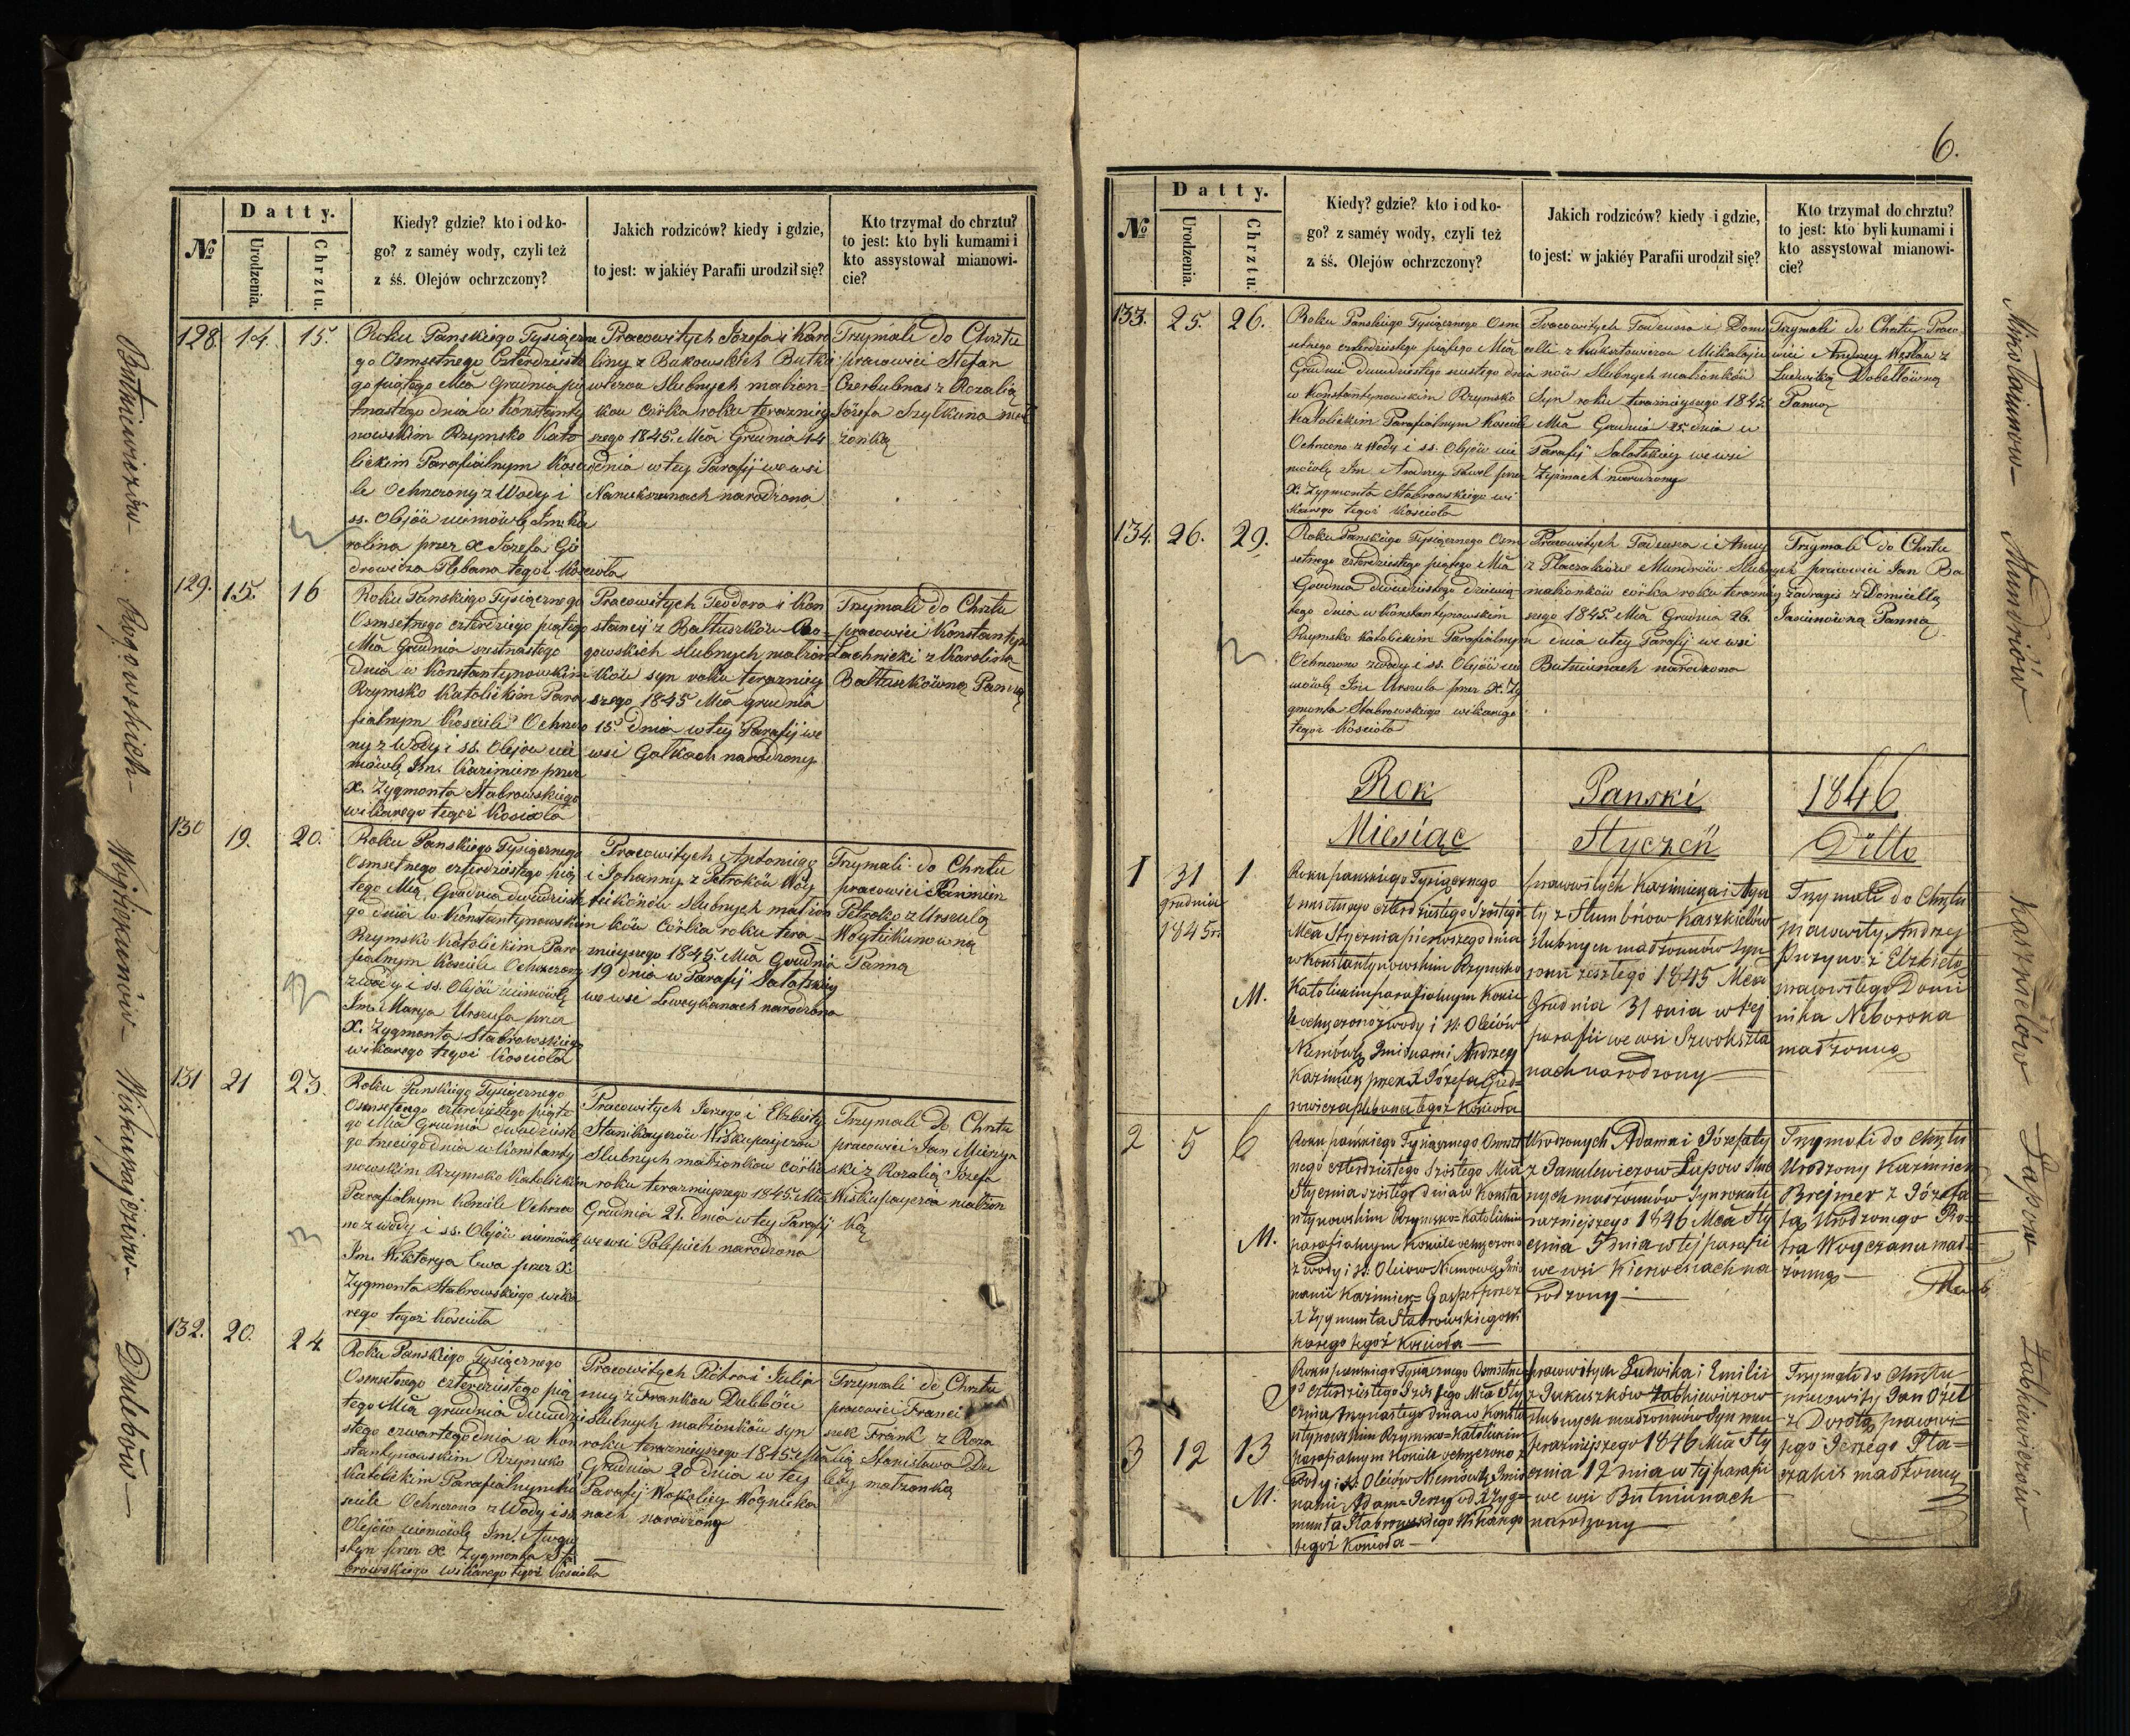 №
Datty.
Urodzenia.
Chrztu.
Kiedy? gdzie? kto i od ko-
go? z saméy wody, czyli też
z śś. Olejów ochrzczony?
Jakich rodziców? kiedy i gdzie,
to jest: w jakiéy Parafii urodził się?
Kto trzymał do chrztu?
to jest: kto byli kumami i
kto assystował mianowi-
cie?
128
14.
15.
Roku Panskiego Tysiączne
go Osmsetnego Czterdzieste
go piątego Mca Grudnia pię
tnastego dnia w Konstanty
nowskim Rzymsko Kato
lickim Parafialnym Kosc
le Ochrzczony z Wody i
ss. Olejów niemowlę Im. Ka
rolina przez X Jozefa Gie
drowicza Plebana tegoż Kościoła
Pracowitych Józefa i Karo
liny z Bukowskich Butki
wiczow Slubnych małżon-
kow córka roku terazniey
szego 1845. Mca Grudnia 14
dnia w tey Parafij we wsi
narodzona
Trzymali do Chrztu
pracowici Stefan
z Rozalią
Józefa Szylkuna mał
żonką
129.
15.
16
Roku Panskiego Tysiącznego
Osmsetnego czterdziego piątego
Mca Grudnia szestnastego
dnia w Konstantynowskim
Rzymsko Katolickim Para
fialnym Kosciele Ochrzczo
ny z Wody i ss. Olejow nie
mowlę Im. Kazimierz przez
X. Zygmonta Stabrowskiego
wikarego tegoż Kosciola
Pracowitych Teodora i Kon
stancij z Baltuszków Ro-
gowskich slubnych małżon
ków syn roku terazniey
szego 1845 Mca grudnia
15 dnia w tey Parafij we
wsi Gałkach narodzony
Trzymali do Chrztu
pracowici Konstanty
Lachnicki z Karoliną
Baltuszkówną Panną
130
19.
20.
Roku Panskiego Tysiącznego
Osmsetnego czterdziestego pią
tego Mca Grudnia dwudzieste
go dnia w Konstantynowskim
Rzymsko Katolickim Para
fialnym Kosciele Ochrzczony
z wody i ss. Olejów niemowlę
Im. Marya Urszula przez
X. Zygmonta Stabrowskiego
wikarego tegoż Kosciola
Pracowitych Antoniego
i Johanny z Petroków Woy
tiekónów Slubnych małżon
ków Córka roku tera-
znieyszego 1845. Mca Grudnia
19 dnia w Parafij Sałatskiey
we wsi narodzona
Trzymali do Chrztu
pracowici Kazimierz
Petroko z Urszulą
Woytiekunowną
Panną
131
21
23.
Roku Panskiego Tysiącznego
Osmsetnego czterdziestego piąte
go Mca Grudnia dwudzieste
go trzeciego dnia w Konstanty
nowskim Rzymsko Katolickim
Parafialnym Kosciele Ochrzczo
no z wody i ss. Olejów niemowlę
Im. Wiktorya Ewa przez X
Zygmonta Stabrowskiego wika
rego tegoż Kosciola
Pracowitych Jerzego i Elzbiety
Slubnych małżonków córka
roku terazniejszego 1845. Mca
Grudnia 21. dnia w tey Parafij
we wsi narodzona
Trzymali do Chrztu
pracowici Jan
ski z Rozalią Józefa
małżon
ką
132.
20.
24.
Roku Panskiego Tysiącznego
Osmsetnego czterdziestego pią
tego Mca grudnia dwudzie
stego czwartego dnia w Kon
stantynowskim Rzymsko
Katolickim Parafialnym Ko
sciele Ochrzczono z Wody i ss
Olejów niemowlę Im. Augu
styn przez X Zygmonta Sta
browskiego wikarego tegoż Kosciola
Pracowitych Piotra i Julia
nny z Franków Dulebów
Slubnych małżonków syn
roku terazniejszego 1845. Mca
Grudnia 20 dnia w tey
Parafij
narodzony
Trzymali do Chrztu
pracowici Franci
szek Frank z Roza
lią Stanisława Du
leby małżonką
Butkiewiczów - Rogowskich - Woytiekunów - - Dulebów -
6.
№
Datty.
Urodzenia.
Chrztu.
Kiedy? gdzie? kto i od ko-
go? z saméy wody, czyli też
z śś. Olejów ochrzczony?
Jakich rodziców? kiedy i gdzie,
to jest: w jakiéy Parafii urodził się?
Kto trzymał do chrztu?
to jest: kto byli kumami i
kto assystował mianowi-
cie?
133.
25.
26.
Roku Panskiego Tysiącznego Osm
setnego czterdziestego piątego Mca
Grudnia dwudziestego szostego dnia
w Konstantynowskim Rzymsko
Katolickim Parafialnym Kosciele
Ochrzczono z Wody i ss. Olejów nie
mowlę Im. Andrzey Karol przez
X. Zygmonta Stabrowskiego wi
karego tegoż Kosciola
Pracowitych Tadeusza i Domi
celli z Mikołaju
nów Slubnych małżonków
Syn roku terazniejszego 1845.
Mca Grudnia 25. dnia w
Parafij Sałatskiey we wsi
narodzony
Trzymali do Chrztu Praco-
wici Andrzey z
Ludwiką
Panną
134.
26.
29.
Roku Panskiego Tysiącznego Osm
setnego czterdziestego piątego Mca
Grudnia dwudziestego dziewią
tego dnia w Konstantynowskim
Rzymsko Katolickim Parafialnym
Ochrzczono z wody i ss. Olejów nie
mowlę Im Urszula przez X. Zy
gmonta Stabrowskiego wikarego
tegoż Kosciola
Pracowitych Tadeusza i Anny
z Płaczaków Mundrów Slubnych
małżonków córka roku terazniey
szego 1845. Mca Grudnia 26.
dnia w tey Parafij we wsi
Butniunach narodzona
Trzymali do Chrztu
pracowici Jan Ba
z Domicellą
Jasiunówną Panną
Rok Panski 1846
Miesiąc Styczeń Ditto
1
31
grudnia
1845 r.
1
M.
Roku panskiego Tysiącznego
czterdziestego Szóstego
Mca Stycznia pierwszego dnia
w Konstantynowskim Rzymsko
Katolickim parafialnym Koscie
le ochrzczono z wody i SS. Oleiów
Niemowlę Imionami Andrzey
Kazimierz przez X Józefa Gied=
rowicza plebana tegoż Kościoła
pracowitych Kazimierza i Aga
ty z Stumbriow Kaszkielów
slubnych małżonków syn
roku zeszłego 1845 Mca
Grudnia 31 dnia w tej
parafii we wsi Szwokszta
nach narodzony
Trzymali do Chrztu
pracowity Andrzey
z Elzbietą
pracowitego Domi
nika
małżonną
2
5
6
M.
Roku pańskiego Tysiącznego Osmset
nego czterdziestego Szóstego Mca
Stycznia szóstego dnia w Konsta
ntynowskim Rzymsko=Katolickim
parafialnym Kosciele ochrzczono
z wody i SS. Oleiow Niemowlę Imio
nami Kazimierz=Gasper przez
X Zygmunta Stabrowskiego Wi
karego tegoż Kościoła
Urodzonych Adama i Józefaty
z Janulewiczow Łapow slub
nych małżonnów syn roku te
razniejszego 1846 Mca Sty
cznia 5 dnia w tej parafii
we wsi na
rodzony
Trzymali do Chrztu
Urodzony Kazimierz
Brejmer z Józefa=
tą Urodzonego Pio=
tra mał=
żonną
3
12
13
M.
Roku panskiego Tysiącznego Osmsetne
go czterdziestego Szóstego Mca Sty
cznia trzynastego dnia w Konsta
ntynowskim Rzymsko=Katolickim
parafialnym Kosciele ochrzczono z
wody i SS. Oleiów Niemowlę Imio
nami Adam=Jerzy od X Zyg=
munta Stabrowskiego Wikarego
tegoż Kościoła
pracowitych Ludwika i Emilii
z Jakuszków Zabkiewiczow
slubnych małżonnów syn roku
terazniejszego 1846 Mca Sty
cznia 12 dnia w tej parafii
we wsi Butniunach
narodzony
Trzymali do Chrztu
pracowity Jan
z Dorotą pracowi=
tego Jerzego Pła=
czapis małżonną
Mikołaiunow - Mundrów Kaszkielów Łapow Zabkiewiczów